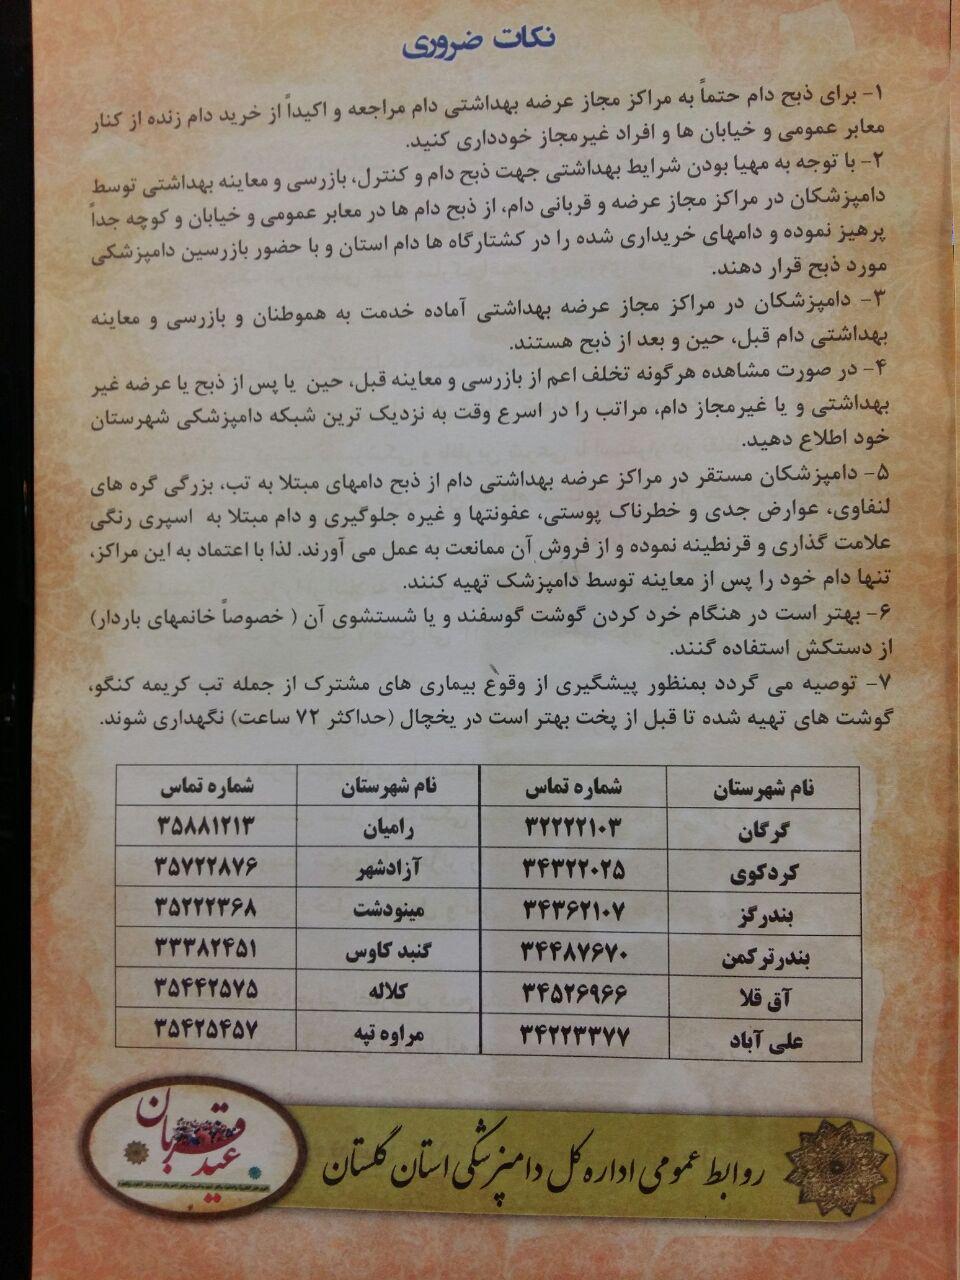 نکات ضروری
۱- برای ذبح دام حتماً به مراکز مجاز عرضه بهداشتی دام مراجعه و اکیداً از خرید دام زنده از کنار
معابر عمومی و خیابان ها و افراد غیرمجاز خودداری کنید.
۲- با توجه به مهیا بودن شرایط بهداشتی جهت ذبح دام و کنترل، بازرسی و معاینه بهداشتی توسط
دامپزشکان در مراکز مجاز عرضه و قربانی دام، از ذبح دام ها در معابر عمومی و خیابان و کوچه جداً
پرهیز نموده و دامهای خریداری شده را در کشتارگاه ها دام استان و با حضور بازرسین دامپزشکی
مورد ذبح قرار دهند.
۳- دامپزشکان در مراکز مجاز عرضه بهداشتی آماده خدمت به هموطنان و بازرسی و معاینه
بهداشتی دام قبل، حین و بعد از ذبح هستند.
۴- در صورت مشاهده هرگونه تخلف اعم از بازرسی و معاینه قبل، حین یا پس از ذبح یا عرضه غیر
بهداشتی و یا غیرمجاز دام، مراتب را در اسرع وقت به نزدیک ترین شبکه دامپزشکی شهرستان
خود اطلاع دهید.
۵- دامپزشکان مستقر در مراکز عرضه بهداشتی دام از ذبح دامهای مبتلا به تب، بزرگی گره های
لنفاوی، عوارض جدی و خطرناک پوستی، عفونتها و غیره جلوگیری و دام مبتلا به اسپری رنگی
علامت گذاری و قرنطینه نموده و از فروش آن ممانعت به عمل می آورند. لذا با اعتماد به این مراکز،
تنها دام خود را پس از معاینه توسط دامپزشک تهیه کنند.
۶- بهتر است در هنگام خرد کردن گوشت گوسفند و یا شستشوی آن ( خصوصاً خانمهای باردار)
از دستکش استفاده گنند.
۷- توصیه می گردد بمنظور پیشگیری از وقوع بیماری های مشترک از جمله تب کریمه کنگو،
گوشت های تهیه شده تا قبل از پخت بهتر است در یخچال (حداکثر ۷۲ ساعت) نگهداری شوند.
نام شهرستان شماره تماس نام شهرستان شماره تماس
گرگان ۳۲۲۲۲۱۰۳ رامیان ۳۵۸۸۱۲۱۳
کردکوی ۳۴۳۲۲۰۲۵ آزادشهر ۳۵۷۲۲۸۷۶
بندرگز ۳۴۳۶۲۱۰۷ مینودشت ۳۵۲۲۲۳۶۸
بندرترکمن ۳۴۴۸۷۶۷۰ گنبد کاوس ۳۳۳۸۲۴۵۱
آق قلا ۳۴۵۲۶۹۶۶ کلاله ۳۵۴۴۲۵۷۵
علی آباد ۳۴۲۲۳۳۷۷ مراوه تپه ۳۵۴۲۵۴۵۷
روابط عمومی اداره کل دامپزشکی استان گلستان
عید قربان